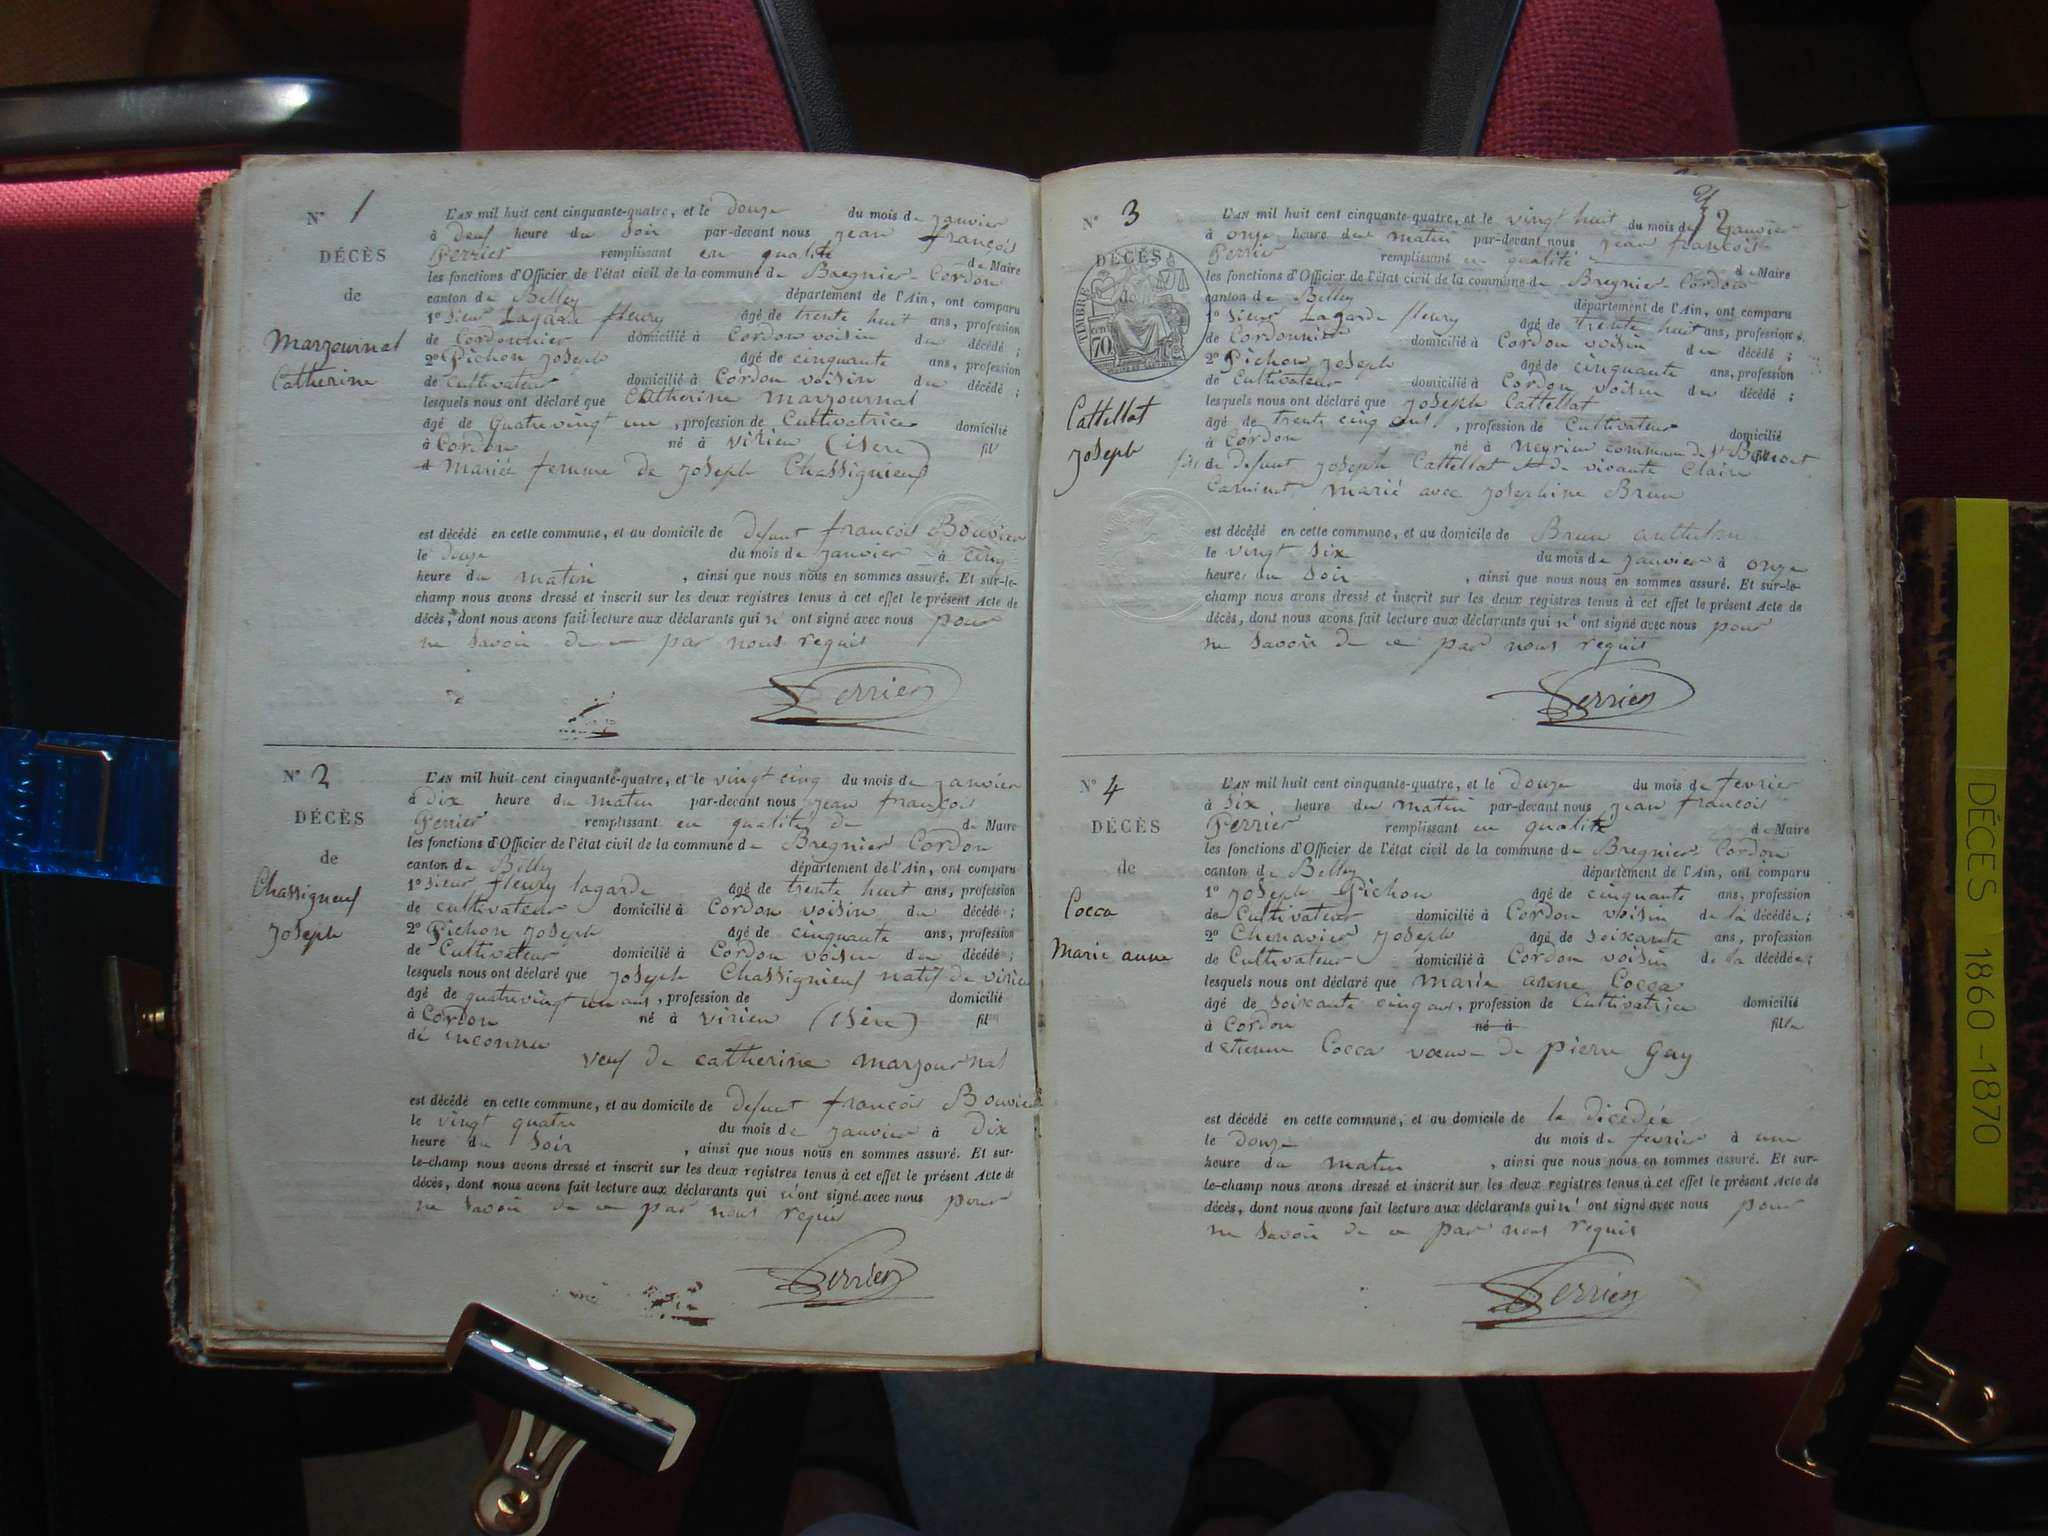 N° 1
DÉCÈS
de
Marjournal
Catherine
L'AN mil huit cent cinquante-quatre, et le douze du mois de janvier
à deux heure du Soir par-devant nous jean françois
Perrier remplissant en qualité de Maire
les fonctions d'Officier de l'état civil de la commune de Bregnier-Cordon
canton de Belley département de l'Ain, ont comparu
1° Sieur Lagarde fleury âgé de trente huit ans, profession
de Cordonnier domicilié à Cordon voisin du décédé ;
2° Pichon joseph âgé de cinquante ans, profession
de Cultivateur domicilié à Cordon voisin du décédé ;
lesquels nous ont déclaré que Catherine Marjournal
âgé de Quatrevingt un , profession de Cultivatrice domicilié
à Cordon né à virieu (isere) fil
d Mariée femme de joseph Chassignieuf
est décédé en cette commune, et au domicile de defunt françois Bouvier
le douze du mois de janvier à cinq
heure du matin , ainsi que nous nous en sommes assuré. Et sur-le-
champ nous avons dressé et inscrit sur les deux registres tenus à cet effet le présent Acte de
décès, dont nous avons fait lecture aux déclarants qui n'ont signé avec nous pour
ne Savoir de ce par nous requis
Perrier
N° 2
DÉCÈS
de
Chassigneuf
joseph
L'AN mil huit cent cinquante-quatre, et le vingt cinq du mois de janvier
à dix heure du matin par-devant nous jean françois
Perrier remplissant en qualité de de Maire
les fonctions d'Officier de l'état civil de la commune de Bregnier Cordon
canton de Belley département de l'Ain, ont comparu
1° Sieur fleury lagarde âgé de trente huit ans, profession
de cultivateur domicilié à Cordon voisin du décédé ;
2° Pichon joseph âgé de cinquante ans, profession
de Cultivateur domicilié à Cordon voisin du décédé ;
lesquels nous ont déclaré que joseph Chassignieuf natif de virieu
âgé de quatrevingt un ans , profession de domicilié
à Cordon né à virieu (isère) fil
de inconnu
veuf de catherine marjournal
est décédé en cette commune, et au domicile de defunt françois Bouvier
le vingt quatre du mois de janvier à dix
heure du Soir , ainsi que nous nous en sommes assuré. Et sur-
le-champ nous avons dressé et inscrit sur les deux registres tenus à cet effet le présent Acte de
décès, dont nous avons fait lecture aux déclarants qui n'ont signé avec nous pour
ne Savoir de ce par nous requis
Perrier
2
N° 3
DÉCÈS
de
TIMBRE
70
cent
Cattellat
joseph
L'AN mil huit cent cinquante-quatre, et le vingt huit du mois de janvier
à onze heure du matin par-devant nous jean françois
Perrier remplissant en qualité de Maire
les fonctions d'Officier de l'état civil de la commune de Bregnier-Cordon
canton de Belley département de l'Ain, ont comparu
1° Sieur Lagarde fleury âgé de trente huit ans, profession
de Cordonnier domicilié à Cordon voisin du décédé ;
2° Pichon joseph âgé de cinquante ans, profession
de Cultivateur domicilié à Cordon voisin du décédé ;
lesquels nous ont déclaré que joseph Cattellat
âgé de trente cinq ans , profession de Cultivateur domicilié
à Cordon né à Neyrieu commune de St Benoet
fils de defunt joseph Cattellat et de vivante Claire
Carninet, marié avec josephine Brun
est décédé en cette commune, et au domicile de Brun anthelme
le vingt Six du mois de janvier à onze
heure du Soir , ainsi que nous nous en sommes assuré. Et sur-le-
champ nous avons dressé et inscrit sur les deux registres tenus à cet effet le présent Acte de
décès, dont nous avons fait lecture aux déclarants qui n'ont signé avec nous pour
ne Savoir de ce par nous requis
Perrier
N° 4
DÉCÈS
de
Cocca
Marie anne
L'AN mil huit cent cinquante-quatre, et le douze du mois de fevrier
à Six heure du matin par-devant nous jean françois
Perrier remplissant en qualité de Maire
les fonctions d'Officier de l'état civil de la commune de Bregnier-Cordon
canton de Belley département de l'Ain, ont comparu
1° joseph Pichon âgé de cinquante ans, profession
de Cultivateur domicilié à Cordon voisin de la décédée ;
2° Chenavier joseph âgé de soixante ans, profession
de Cultivateur domicilié à Cordon voisin de la décédée ;
lesquels nous ont déclaré que marie anne Cocca
âgé de soixante cinq ans, profession de Cultivatrice domicilié
à Cordon né à fille
d etienne Cocca voeuve de pierre Gay
est décédé en cette commune, et au domicile de la décédée
le douze du mois de fevrier à une
heure du matin , ainsi que nous nous en sommes assuré. Et sur-
le-champ nous avons dressé et inscrit sur les deux registres tenus à cet effet le présent Acte de
décès, dont nous avons fait lecture aux déclarants qui n'ont signé avec nous pour
ne Savoir de ce par nous requis
Perrier
DÉCES 1860-1870